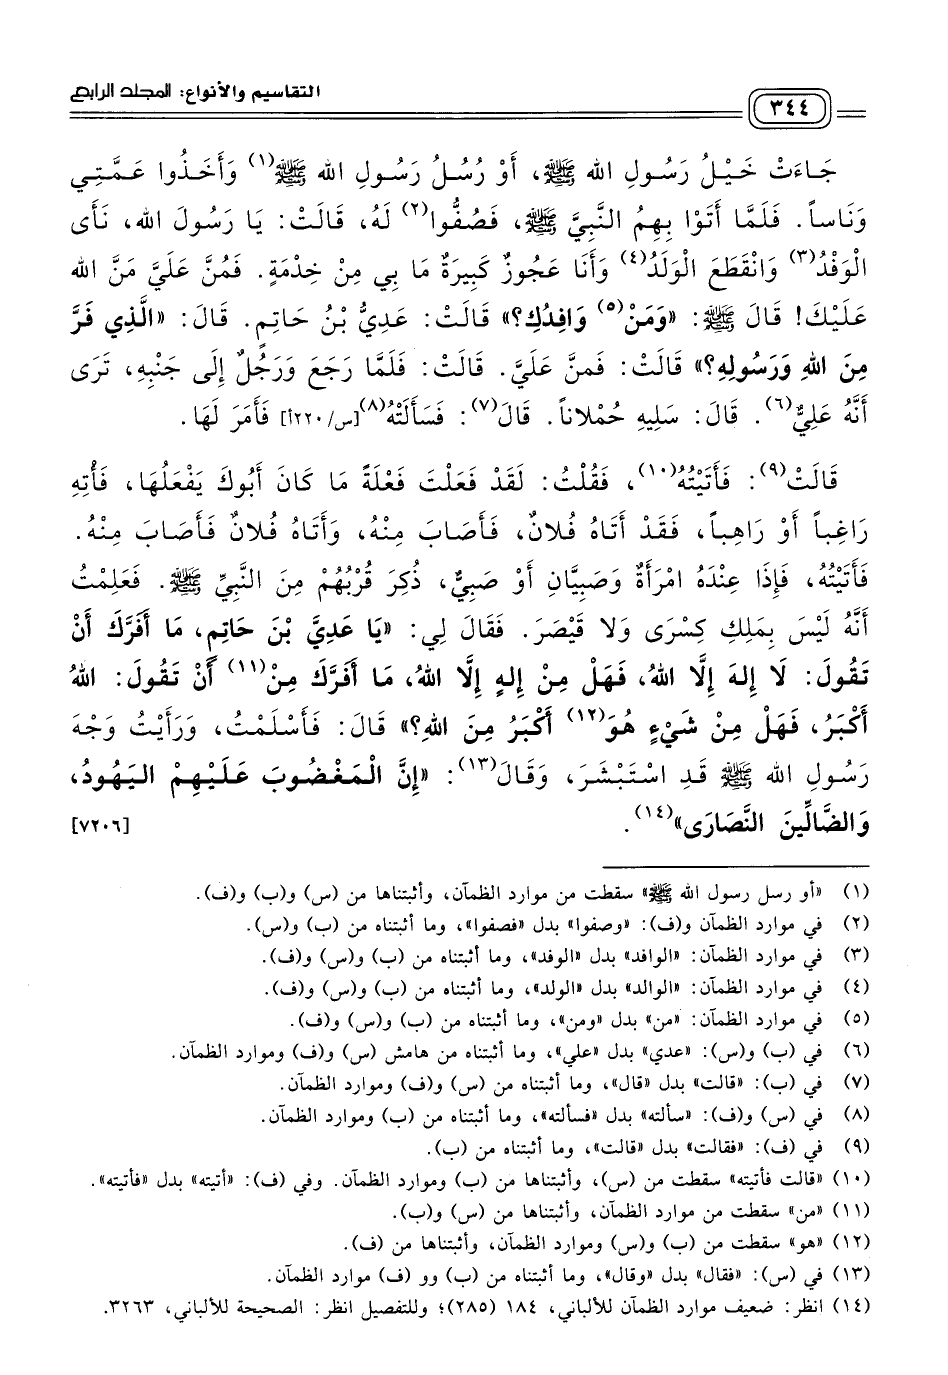 التقاسيم والأنواع: المجلد الرابع
٣٤٤
جَاءَتْ خَيْلُ رَسُولِ الله ﷺ، أَوْ رُسُلُ رَسُولِ الله ﷺ(١) وَأَخَذُوا عَمَّتِي
وَنَاساً. فَلَمَّا أَتَوْا بِهِمُ النَّبِيَّ ﷺ، فَصُفُّوا(٢) لَهُ، قَالَتْ: يَا رَسُولَ الله، نَأَى
الْوَفْدُ(٣) وَانْقَطَعَ الْوَلَدُ(٤) وَأَنَا عَجُوزٌ كَبِيرَةٌ مَا بِي مِنْ خِدْمَةٍ. فَمُنَّ عَلَيَّ مَنَّ الله
عَلَيْكَ! قَالَ ﷺ: «وَمَنْ(٥) وَافِدُكِ؟» قَالَتْ: عَدِيُّ بْنُ حَاتِمٍ. قَالَ: «الَّذِي فَرَّ
مِنَ اللهِ وَرَسُولِهِ؟» قَالَتْ: فَمنَّ عَلَيَّ. قَالَتْ: فَلَمَّا رَجَعَ وَرَجُلٌ إِلَى جَنْبِهِ، تَرَى
أَنَّهُ عَلِيٌّ(٦). قَالَ: سَلِيهِ حُمْلاناً. قَالَ(٧): فَسَأَلَتْهُ(٨)[س/٢٢٠أ] فَأَمَرَ لَهَا.
قَالَتْ(٩): فَأَتَيْتُهُ(١٠)، فَقُلْتُ: لَقَدْ فَعَلْتَ فَعْلَةً مَا كَانَ أَبُوكَ يَفْعَلُهَا، فَأْتِهِ
رَاغِباً أَوْ رَاهِباً، فَقَدْ أَتَاهُ فُلانٌ، فَأَصَابَ مِنْهُ، وَأَتَاهُ فُلانٌ فَأَصَابَ مِنْهُ.
فَأَتَيْتُهُ، فَإِذَا عِنْدَهُ امْرَأَةٌ وَصَبِيَّانِ أَوْ صَبِيٌّ، ذُكِرَ قُرْبُهُمْ مِنَ النَّبِيِّ ﷺ. فَعَلِمْتُ
أَنَّهُ لَيْسَ بِمَلِكِ كِسْرَى وَلا قَيْصَرَ. فَقَالَ لِي: «يَا عَدِيَّ بْنَ حَاتِمٍ، مَا أَفَرَّكَ أَنْ
تَقُولَ: لَا إِلهَ إِلَّا اللهُ، فَهَلْ مِنْ إِلهٍ إِلَّا اللهُ، مَا أَفَرَّكَ مِنْ(١١) أَنْ تَقُولَ: اللهُ
أَكْبَرُ، فَهَلْ مِنْ شَيْءٍ هُوَ(١٢) أَكْبَرُ مِنَ اللهِ؟» قَالَ: فَأَسْلَمْتُ، وَرَأَيْتُ وَجْهَ
رَسُولِ الله ﷺ قَدِ اسْتَبْشَرَ، وَقَالَ(١٣): «إِنَّ الْمَغْضُوبَ عَلَيْهِمْ الْيَهُودُ،
وَالضَّالِّينَ النَّصَارَى»(١٤). [٧٢٠٦]
(١) «أو رسل رسول الله ﷺ» سقطت من موارد الظمآن، وأثبتناها من (س) و(ب) و(ف).
(٢) في موارد الظمآن و(ف): «وصفوا» بدل «فصفوا»، وما أثبتناه من (ب) و(س).
(٣) في موارد الظمآن: «الوافد» بدل «الوفد»، وما أثبتناه من (ب) و(س) و(ف).
(٤) في موارد الظمآن: «الوالد» بدل «الولد»، وما أثبتناه من (ب) و(س) و(ف).
(٥) في موارد الظمآن: «من» بدل «ومن»، وما أثبتناه من (ب) و(س) و(ف).
(٦) في (ب) و(س): «عدي» بدل «علي»، وما أثبتناه من هامش (س) و(ف) وموارد الظمآن.
(٧) في (ب): «قالت» بدل «قال»، وما أثبتناه من (س) و(ف) وموارد الظمآن.
(٨) في (س) و(ف): «سألته» بدل «فسألته»، وما أثبتناه من (ب) وموارد الظمآن.
(٩) في (ف): «فقالت» بدل «قالت»، وما أثبتناه من (ب).
(١٠) «قالت فأتيته» سقطت من (س)، وأثبتناها من (ب) وموارد الظمآن. وفي (ف): «أتيته» بدل «فأتيته».
(١١) «من» سقطت من موارد الظمآن، وأثبتناها من (س) و(ب).
(١٢) «هو» سقطت من (ب) و(س) وموارد الظمآن، وأثبتناها من (ف).
(١٣) في (س): «فقال» بدل «وقال»، وما أثبتناه من (ب) وو (ف) موارد الظمآن.
(١٤) انظر: ضعيف موارد الظمآن للألباني، ١٨٤ (٢٨٥)؛ وللتفصيل انظر: الصحيحة للألباني، ٣٢٦٣.